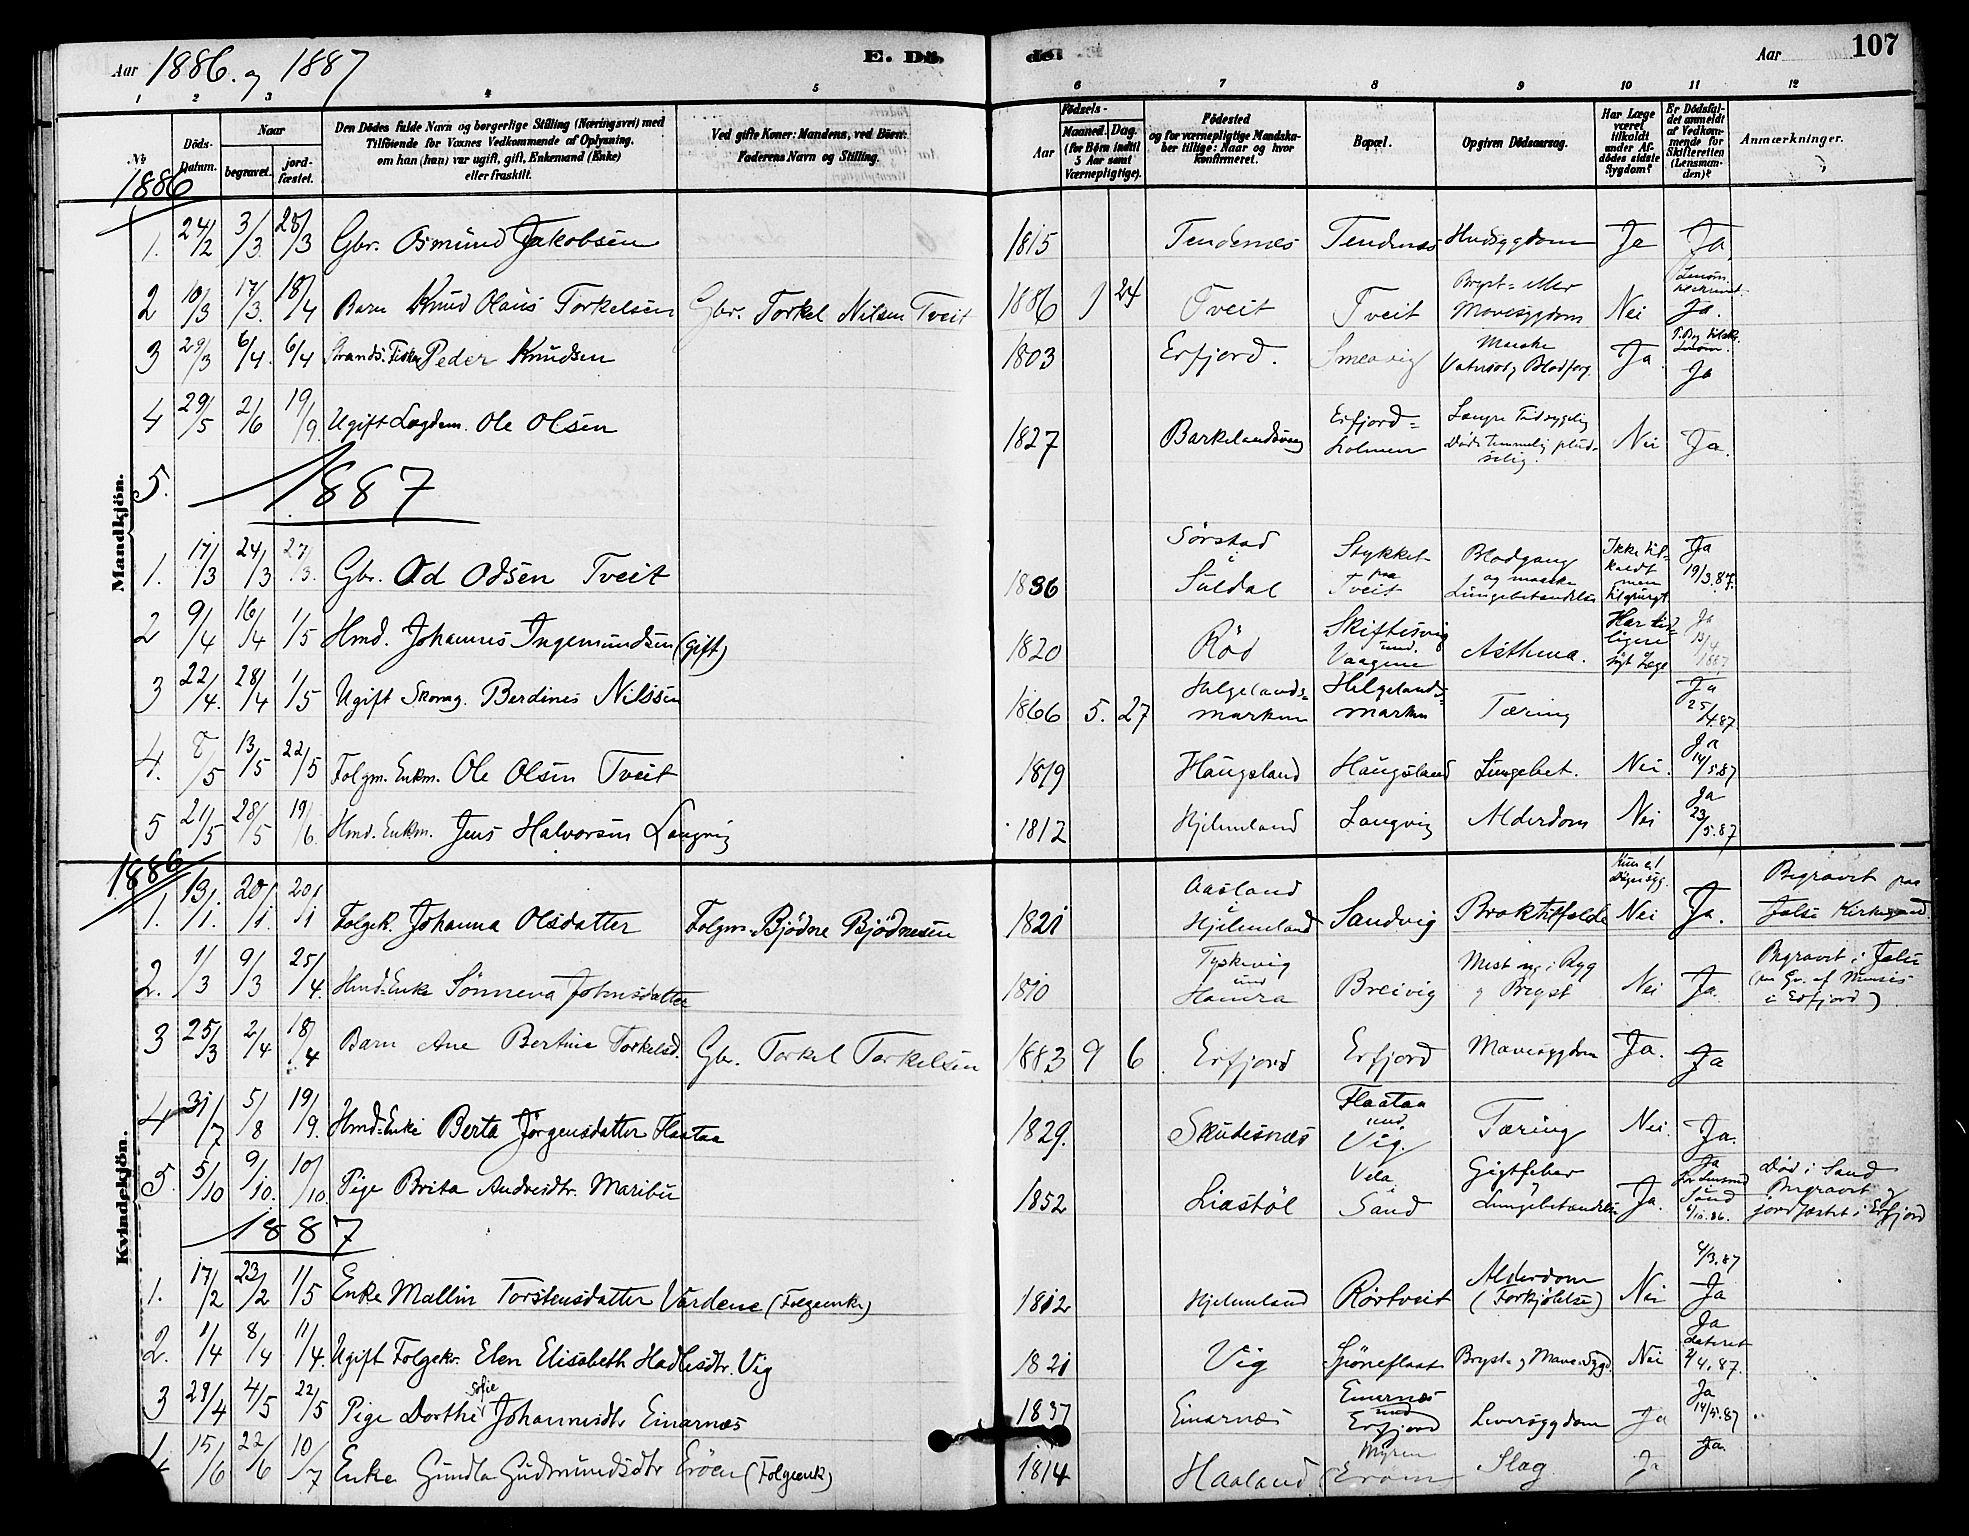 Aar 1886. og 1887 E. Dö- de. Aar 107
1 2 3 4 5 6 7 8 9 10 11 12
No
Döds-Datum.
Naar
begravet.
jord-fæstet.
Den Dödes fulde Navn og borgerlige Stilling (Næringsvei) med
Tilföiende for Voxnes Vedkommende af Oplysning,
om han (hun) var ugift, gift, Enkemand (Enke)
eller fraskilt.
Ved gifte Koner: Mandens, ved Börn:
Faderens Navn og Stilling.
Födsels-
Aar
Maaned. Dag.
(for Börn indtil
5 Aar samt
Værnepligtige).
Födested
og for værnepligtige Mandska-
ber tillige: Naar og hvor
Konfirmeret.
Bopæl.
Opgiven Dödsaarsag.
Har Læge
været
tilkaldt
under Af-
dödes sidste
Sygdom?
Er Dödsfal-
det anmeldt
af Vedkom-
mende for
Skifteretten
(Lensman-
den)?
Anmærkninger.
Mandkjön.
1886
1. 24/2 3/3 28/3 Gbr. Osmund Jakobsen 1815 Tendenes Tendenes Ja Ja
2 10/3 17/3. 18/4 Barn Knud Olaus Torkelsen Gbr. Torkel Nilsen Tveit 1886 1 24 Tveit Tveit Bryst- eller Mavesygdom Nei Ja.
3 29/3 6/4. 6/4 Peder Knudsen 1803 Erfjord. Smeavig Ja Ja
4 29/5 2/6 19/9. Ugift Lægdem. Ole Olsen 1827 Erfjord-holmen Nei Ja.
5.
1887
1. 17/3 24/3 27/3. Gbr. Od Odsen Tveit 1836 Sørstad i Suldal Stykket paa Tveit Blodgang og maaske Lungebetændelse Ikke til-kaldt men Ja 19/3.87.
2 9/4 16/4 1/5 Hmd. Johannes Ingemundsen (gift) 1820 Rød Skiftesvig und. Vaagene Asthma. Har tid-ligere søgt Læge Ja 13/4 1887
3 22/4. 28/4 1/5 Ugift Skomag. Berdines Nilssen 1866 5. 27 Helgelands-marken Helgelands-marken Tæring Ja 25/4.87
4. 8/5 13/5 22/5 Folgm. Enkm. Ole Olsen Tveit 1819 Haugsland Haugsland Lungebet. Nei. Ja 14/5.87
5 21/5 28/5 19/6. Hmd. Enkm. Jens Halvorsen Langvig 1812 Hjelmeland Langvig Alderdom Nei Ja 23/5.87
Kvindekjön.
1886
1. 13/1. 20/1. 20/1 Folgek. Johanna Olsdatter Folgm. Bjødne Bjødnesen 1821 Aasland i Hjelmeland Sandvig Braktilfælde Kun et Døgn syg. Nei Ja. Begravet paa Jelse Kirkegaard
2. 1/3 9/3 25/4. Hmd-Enke Sønneva Johnsdatter 1810 Tyskevig und Hamra Breivig Mest ug i Ryg og Bryst Nei Ja. Begravet i Jelse
3 25/3 2/4 18/4 Barn Ane Bertine Torkelsd. Gbr. Torkel Torkelsen 1883 9 6 Erfjord Erfjord Mavesygdom Ja. Ja
4 31/7 5/8 19/9. Hmd-Enke Berta Jørgensdatter Flaataa 1829. Skudesnæs Flaataa und. Vig. Tæring Nei. Ja.
5. 5/10 9/10. 10/10. Pige Brita Andreasdtr. Maribu 1852 Liastøl Vela Sand Gigtfeber og Lungebetændelse Ja. Ja for Lensmd Sand 6/10.86. Død i Sand Begravet og jordfæstet i Erfjord
1887
1. 17/2 23/2 1/5 Enke Mallin Torstensdatter Vardene (Folgeenke) 1812 Hjelmeland Rørtveit Alderdom (Forkjølelse) Nei 4/3.87 Ja
2. 1/4 8/4 11/4. Ugift Folgek. Elen Elisabeth Hadlesdtr. Vig 1821 Vig Sjøneflaat Bryst- og Mave-Sygd. Nei Ja dateret 2/4.87.
3 29/4 4/5 22/5 Pige Dorthe Sofie Johannesdtr Einarnæs 1837 Einarnæs Einernæs und Erfjord Leversygdom Ja Ja 14/5.87
15/6 22/6 10/7 Enke Gundla Gudmundsdtr Erøen (Folgeenk) 1814 Haaland Slag Ja Ja